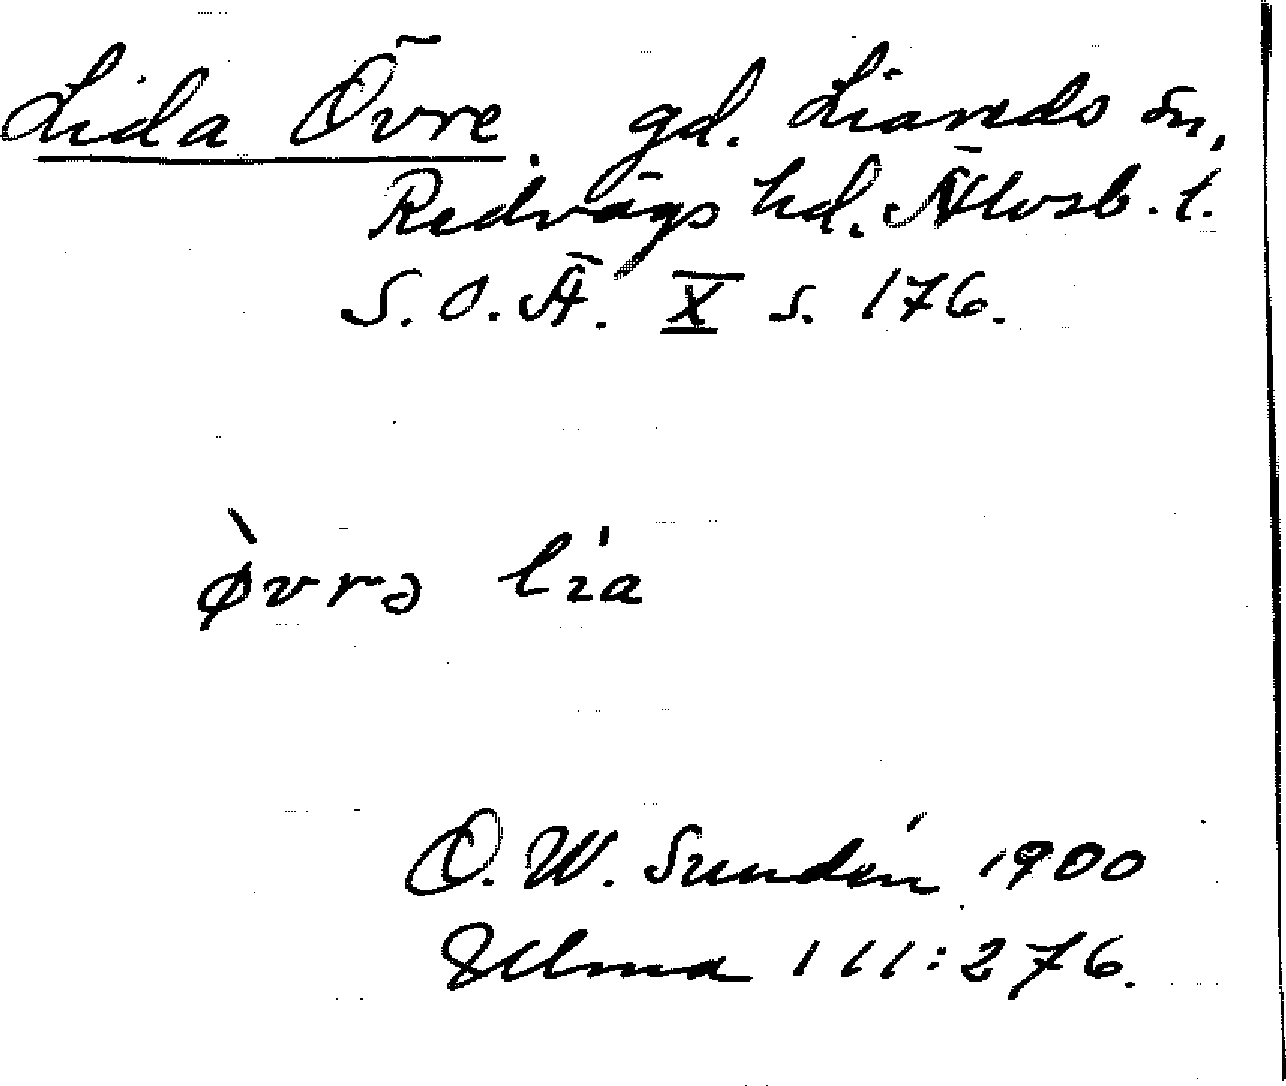 Lida Övre. gd. Liareds sn,
Redvägs hd. Älvsb. l.
S. O. Ä. X s. 176.
ø̀vrə lıa
D. W. Sundén 1900
Ulma 111:276.